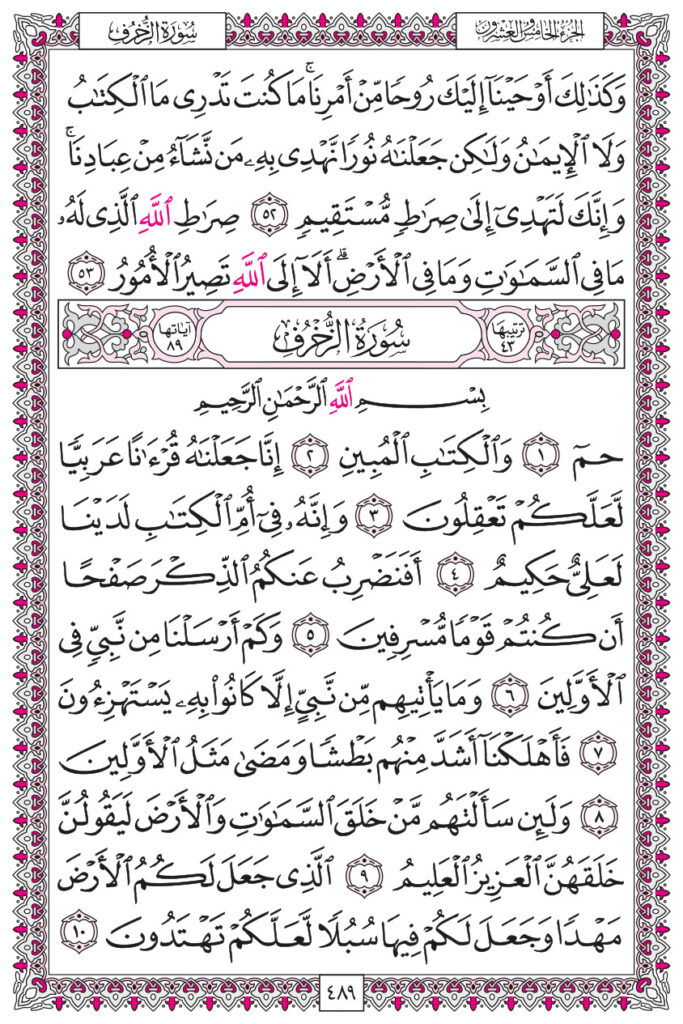 سُورَةُ الزُّخْرُفِ
الجُزْءُ الخَامِسُ وَالعِشْرُونَ
وَكَذَٰلِكَ أَوْحَيْنَآ إِلَيْكَ رُوحًا مِّنْ أَمْرِنَاۚ مَا كُنتَ تَدْرِى مَا ٱلْكِتَٰبُ
وَلَا ٱلْإِيمَٰنُ وَلَٰكِن جَعَلْنَٰهُ نُورًا نَّهْدِى بِهِۦ مَن نَّشَآءُ مِنْ عِبَادِنَاۚ
وَإِنَّكَ لَتَهْدِىٓ إِلَىٰ صِرَٰطٍ مُّسْتَقِيمٍ ٥٢ صِرَٰطِ ٱللَّهِ ٱلَّذِى لَهُۥ
مَا فِى ٱلسَّمَٰوَٰتِ وَمَا فِى ٱلْأَرْضِۗ أَلَآ إِلَى ٱللَّهِ تَصِيرُ ٱلْأُمُورُ ٥٣
ترتيبها ٤٣ سُورَةُ الزُّخْرُفِ آياتها ٨٩
بِسْمِ ٱللَّهِ ٱلرَّحْمَٰنِ ٱلرَّحِيمِ
حمٓ ١ وَٱلْكِتَٰبِ ٱلْمُبِينِ ٢ إِنَّا جَعَلْنَٰهُ قُرْءَٰنًا عَرَبِيًّا
لَّعَلَّكُمْ تَعْقِلُونَ ٣ وَإِنَّهُۥ فِىٓ أُمِّ ٱلْكِتَٰبِ لَدَيْنَا
لَعَلِىٌّ حَكِيمٌ ٤ أَفَنَضْرِبُ عَنكُمُ ٱلذِّكْرَ صَفْحًا
أَن كُنتُمْ قَوْمًا مُّسْرِفِينَ ٥ وَكَمْ أَرْسَلْنَا مِن نَّبِىٍّ فِى
ٱلْأَوَّلِينَ ٦ وَمَا يَأْتِيهِم مِّن نَّبِىٍّ إِلَّا كَانُوا۟ بِهِۦ يَسْتَهْزِءُونَ
٧ فَأَهْلَكْنَآ أَشَدَّ مِنْهُم بَطْشًا وَمَضَىٰ مَثَلُ ٱلْأَوَّلِينَ
٨ وَلَئِن سَأَلْتَهُم مَّنْ خَلَقَ ٱلسَّمَٰوَٰتِ وَٱلْأَرْضَ لَيَقُولُنَّ
خَلَقَهُنَّ ٱلْعَزِيزُ ٱلْعَلِيمُ ٩ ٱلَّذِى جَعَلَ لَكُمُ ٱلْأَرْضَ
مَهْدًا وَجَعَلَ لَكُمْ فِيهَا سُبُلًا لَّعَلَّكُمْ تَهْتَدُونَ ١٠
٤٨٩